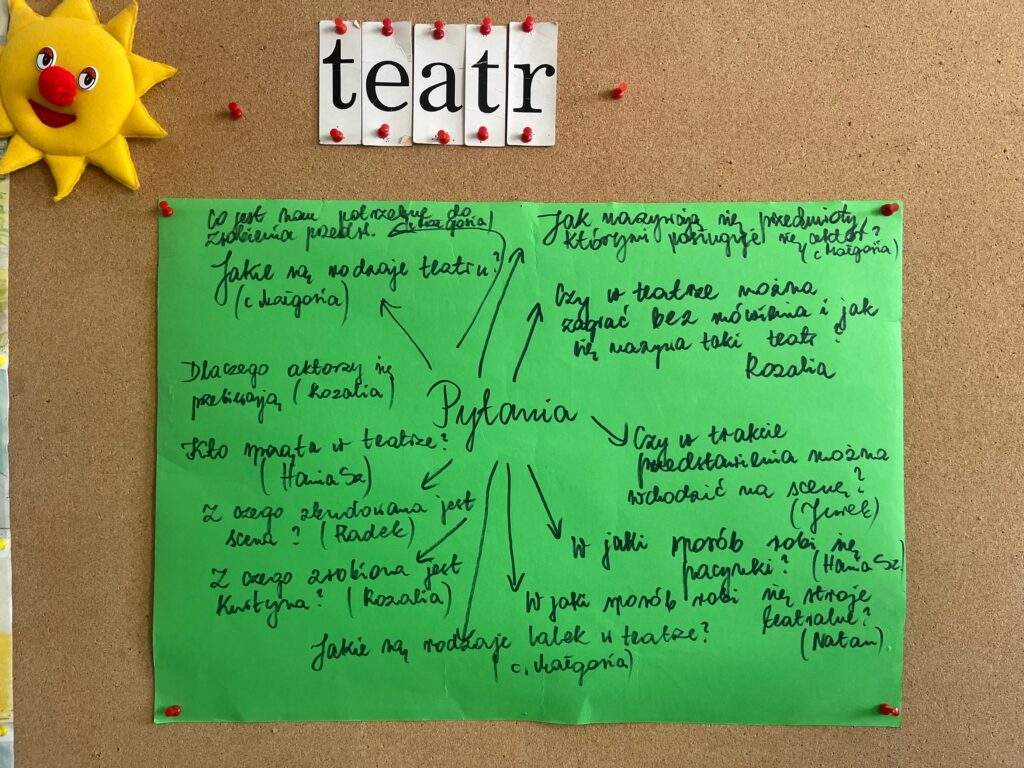 teatr
Co jest nam potrzebne do
zrobienia przedst. (c. Małgosia)
Jakie są rodzaje teatru?
(c Małgosia)
Dlaczego aktorzy się
przebierają (Rozalia)
Kto sprząta w teatrze?
(Hania Sz)
Z czego zbudowana jest
scena? (Radek)
Z czego zrobiona jest
Kurtyna? (Rozalia)
Jakie są rodzaje lalek w teatrze?
(c. Małgosia)
Pytania
Jak nazywają się przedmioty,
którymi posługuje się aktor?
(c Małgosia)
Czy w teatrze można
zagrać bez mówienia i jak
się nazywa taki teatr?
Rozalia
Czy w trakcie
przedstawienia można
wchodzić na scenę?
(Jurek)
W jaki sposób robi się
pacynki? (Hania Sz)
W jaki sposób robi się stroje
teatralne?
(Natan)